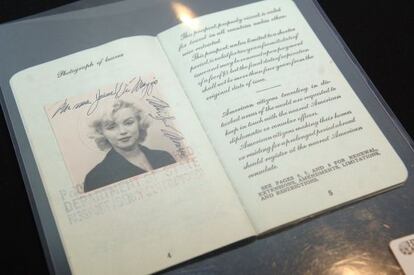 Photograph of bearer
DEPARTMENT
4
This passport, properly visaed is valid
for travel in all countries unless other-
wise restricted.
This passport, unless limited to a shorter
period, is valid for two years from its date of
issue and may be renewed upon payment
of a fee of $5 but the final date of expiration
shall not be more than four years from the
original date of issue.
American citizens traveling in dis-
turbed areas of the world are requested to
keep in touch with the nearest American
diplomatic or consular officers.
American citizens making their home
or residing for a prolonged period abroad
should register at the nearest American
consulate.
SEE PAGES 4, 5, AND 6 FOR RENEWAL,
EXTENSIONS, AMENDMENTS, LIMITATIONS,
AND RESTRICTIONS.
5